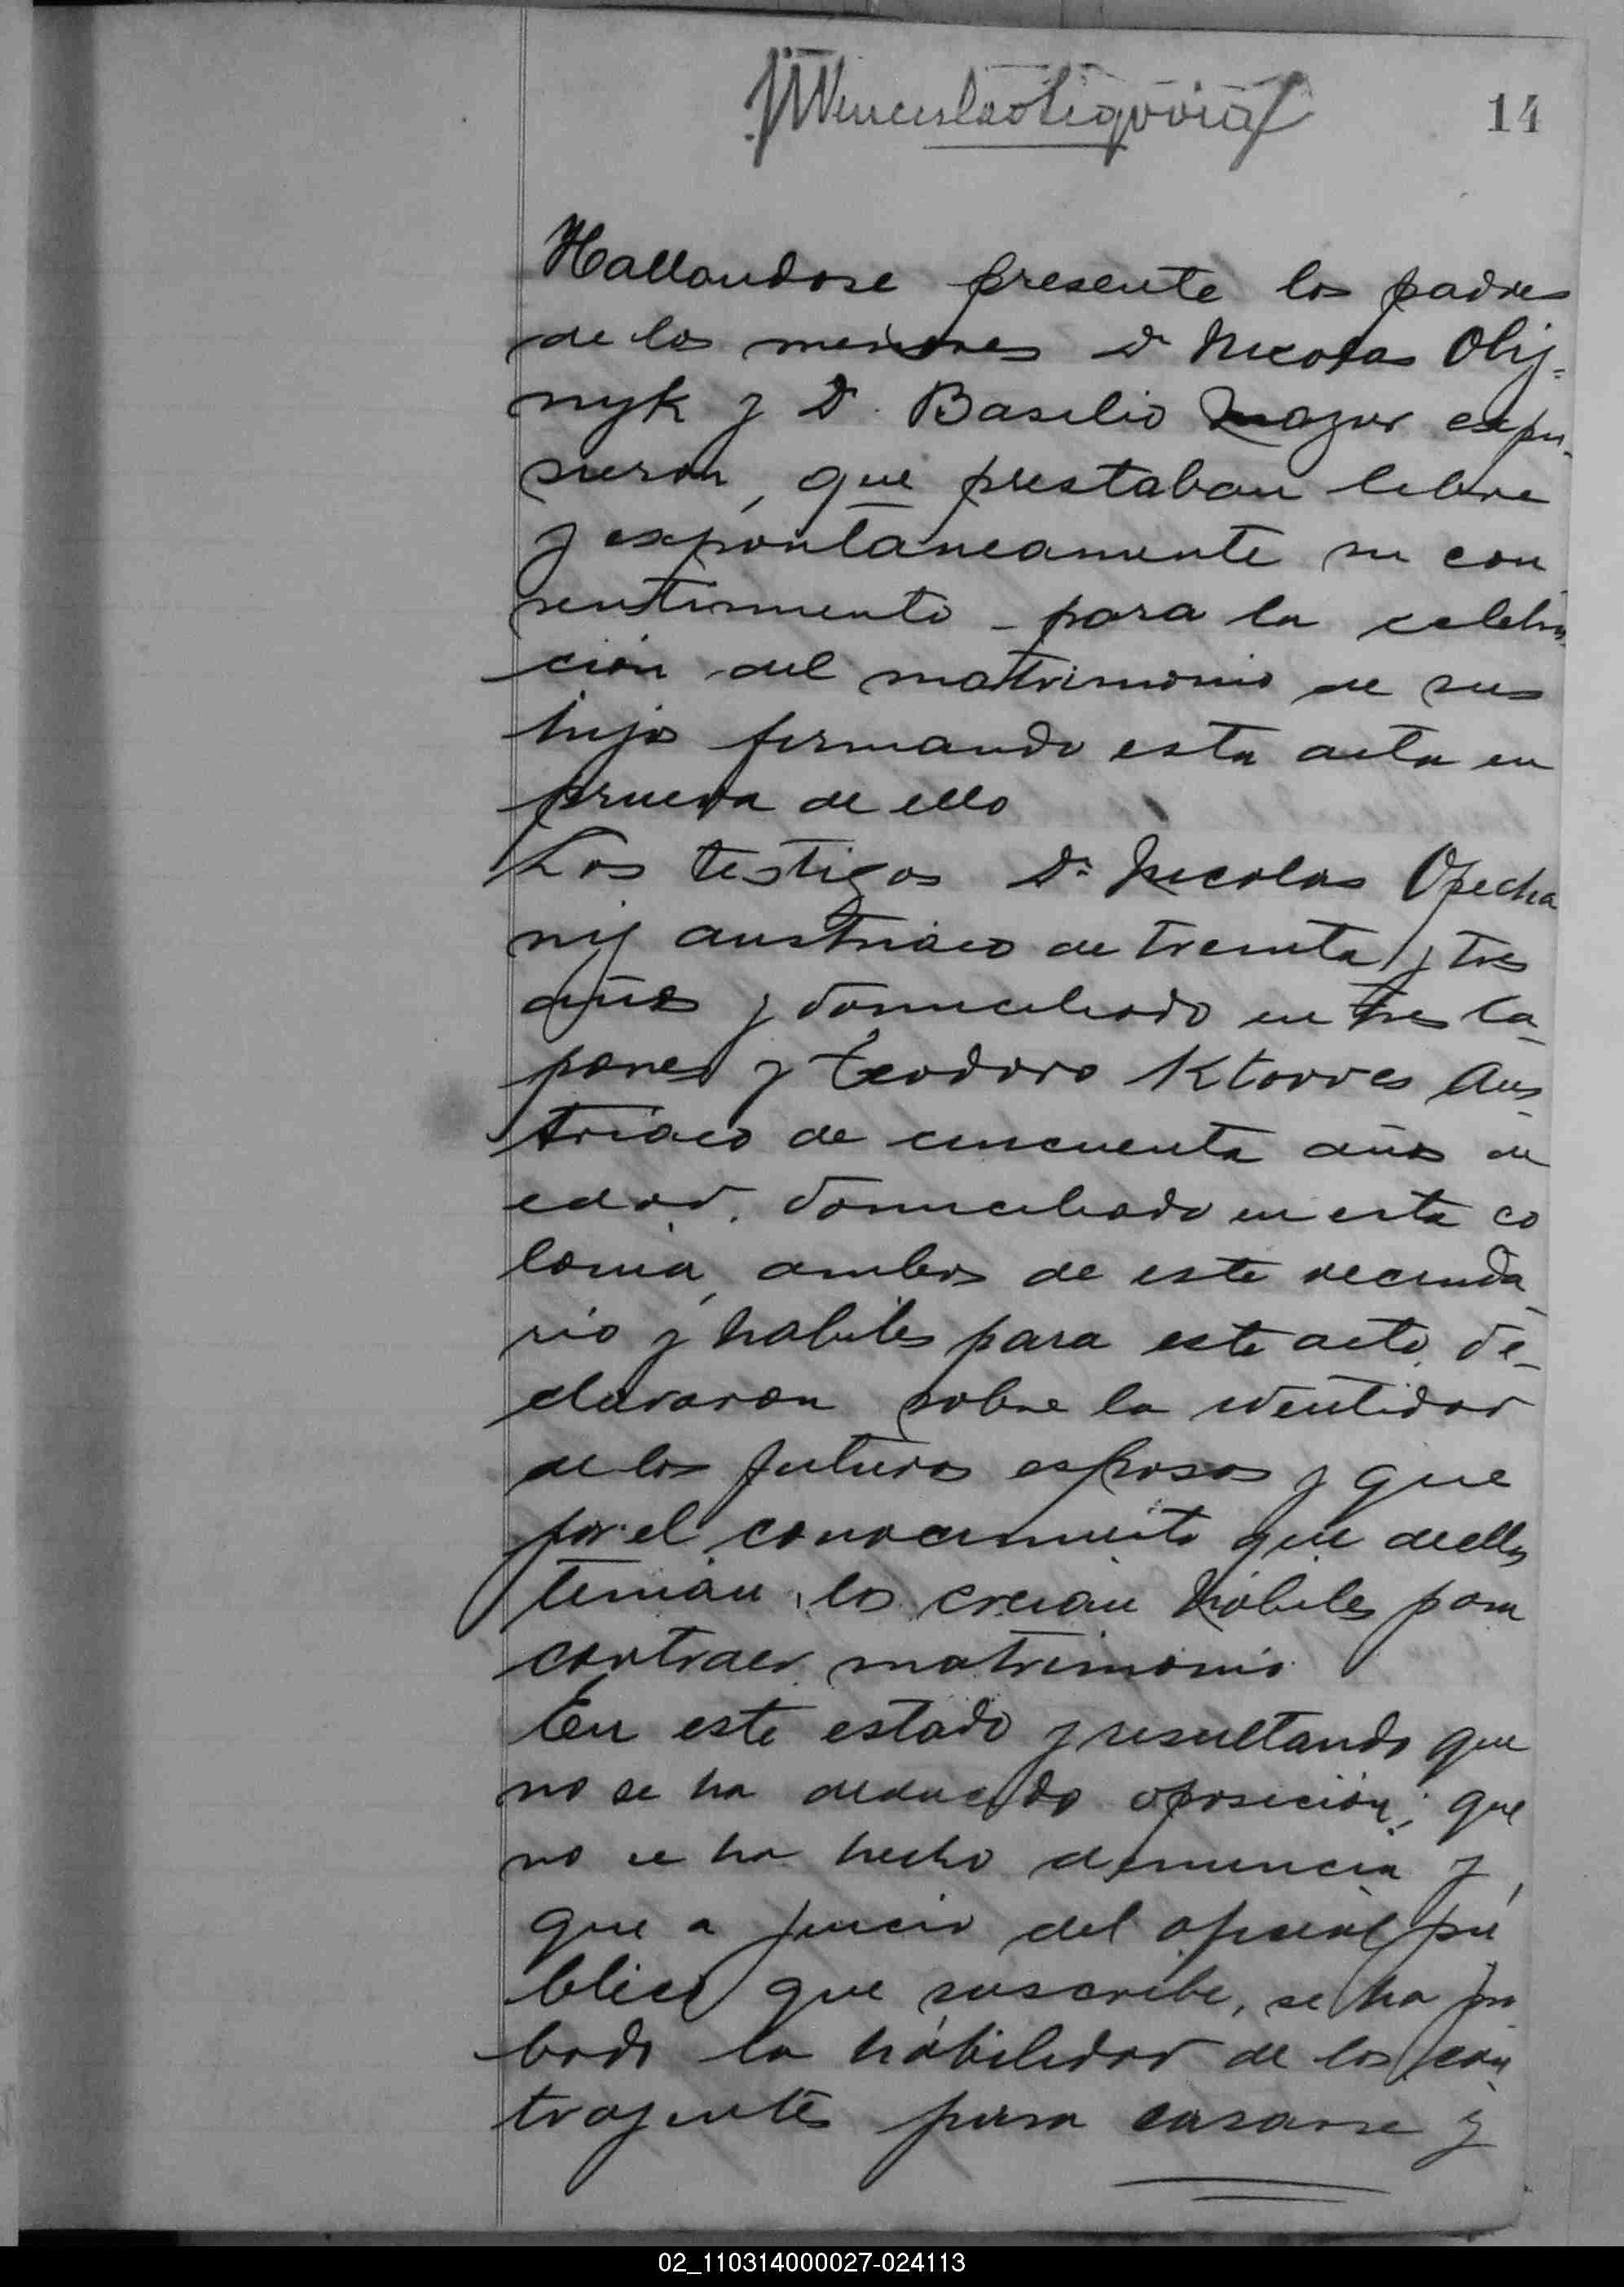 14
Hallandose presente los padres
de los menores Dn Nicolas Olij=
nyk y D. Basilio Mazur expu-
sieron, que prestaban libre
y expontáneamente su con
sentimiento - para la celebra
ción del matrimonio de sus
hijos firmando esta acta en
prueva de ello
Los testigos Dn Nicolas Opecha
nij austriaco de treinta y tres
años y domiciliado en tres Ca-
pones y Teodoro Ktorres Aus-
triaco de cincuenta años de
edad. domiciliado en esta co
lonia, ambos de este vecinda-
rio y habiles para este acto, de-
clararon sobre la identidad
de los futuros esposos y que
por el conocimiento que de ellos
tenian, los creian hábiles para
contraer matrimonio
En este estado y resultando que
no se ha deducido oposición; que
no se ha hecho denuncia y,
que a juicio del oficial pú
blico que suscribe, se ha pro
bado la habilidad de los con-
trayentes para casarse y
02_110314000027-024113